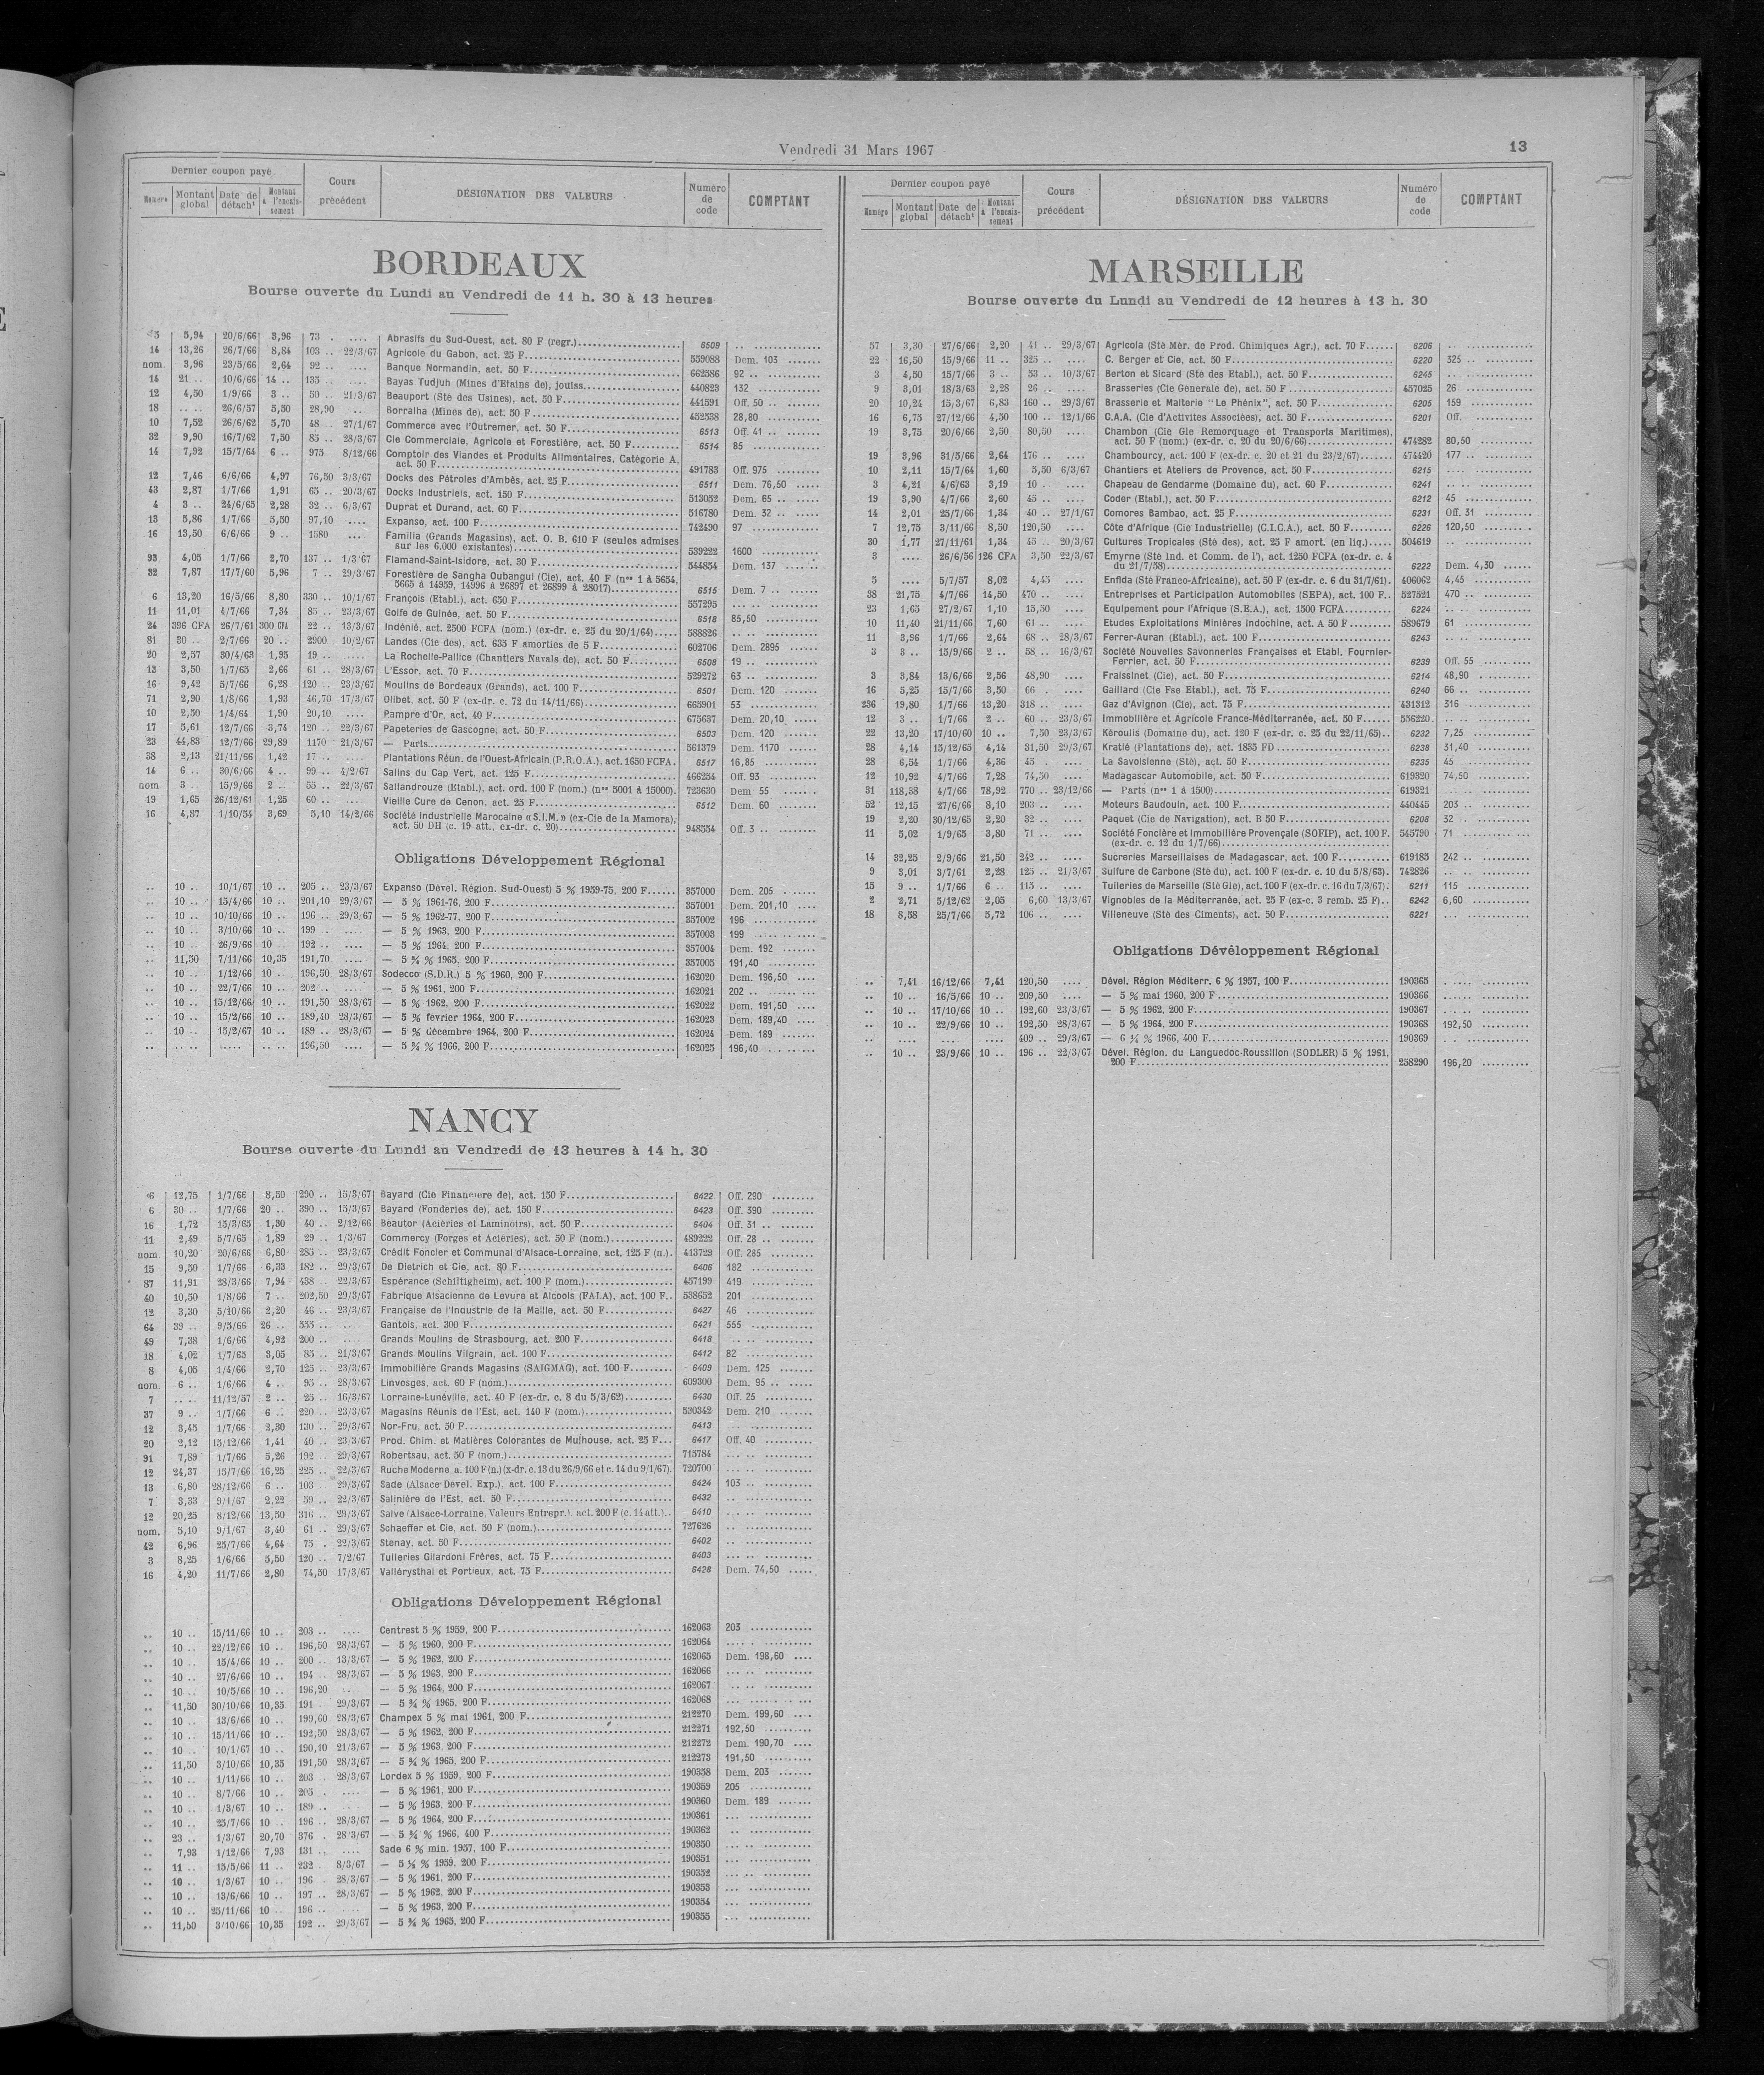 Vendredi 31 Mars 1967
13
Dernier coupon payé
Numéro
Montant global
Date de détach^t
Montant à l'encaissement
Cours précédent
DÉSIGNATION DES VALEURS
Numéro de code
COMPTANT
BORDEAUX
Bourse ouverte du Lundi au Vendredi de 11 h. 30 à 13 heures
5,94 20/6/66 3,96 73 . .... Abrasifs du Sud-Ouest, act. 80 F (regr.) 6509 ..
14 13,26 26/7/66 8,84 103 .. 22/3/67 Agricole du Gabon, act. 25 F 559088 Dem. 103
nom. 3,96 23/5/66 2,64 92 .. .... Banque Normandin, act. 50 F 662586 92 ..
14 21 .. 10/6/66 14 .. 135 .. .... Bayas Tudjuh (Mines d'Etains de), jouiss. 440823 132
12 4,50 1/9/66 3 .. 50 .. 21/3/67 Beauport (Sté des Usines), act. 50 F 441591 Off. 50 ..
18 .. .. 26/6/57 5,50 28,90 .. Borralha (Mines de), act. 50 F 452538 28,80
10 7,52 26/6/62 5,70 48 .. 27/1/67 Commerce avec l'Outremer, act. 50 F 6513 Off. 41 ..
32 9,90 16/7/62 7,50 85 .. 28/3/67 Cie Commerciale, Agricole et Forestière, act. 50 F 6514 85
14 7,92 15/7/64 6 .. 975 8/12/66 Comptoir des Viandes et Produits Alimentaires, Catégorie A,
act. 50 F 491783 Off. 975
12 7,46 6/6/66 4,97 76,50 3/3/67 Docks des Pétroles d'Ambès, act. 25 F 6511 Dem. 76,50
43 2,87 1/7/66 1,91 65 .. 20/3/67 Docks Industriels, act. 150 F 513052 Dem. 65 ..
4 3 .. 24/6/65 2,28 32 .. 6/3/67 Duprat et Durand, act. 60 F 516780 Dem. 32 ..
13 5,86 1/7/66 5,50 97,10 .... Expanso, act. 100 F 742490 97
16 13,50 6/6/66 9 .. 1580 ... Familia (Grands Magasins), act. O. B. 610 F (seules admises
sur les 6.000 existantes) 539222 1600
93 4,05 1/7/66 2,70 137 .. 1/3/67 Flamand-Saint-Isidore, act. 30 F 544854 Dem. 137
32 7,87 17/7/60 5,96 7 .. 29/3/67 Forestière de Sangha Oubangui (Cie), act. 40 F (nos 1 à 5654,
5665 à 14959, 14996 à 26897 et 26899 à 28017) 6515 Dem. 7 ..
6 13,20 16/5/66 8,80 330 .. 10/1/67 François (Etabl.), act. 650 F 557295 ... ..
11 11,01 4/7/66 7,34 85 .. 23/3/67 Golfe de Guinée, act. 50 F 6518 85,50
24 396 CFA 26/7/61 300 CFA 22 .. 13/3/67 Indénié, act. 2500 FCFA (nom.) (ex-dr. c. 25 du 20/1/64) 588826 .. ..
81 30 .. 2/7/66 20 .. 2900 10/2/67 Landes (Cie des), act. 635 F amorties de 5 F 602706 Dem. 2895
20 2,57 30/4/63 1,95 19 .. .... La Rochelle-Pallice (Chantiers Navals de), act. 50 F 6508 19 ..
13 3,50 1/7/65 2,66 61 .. 28/3/67 L'Essor, act. 70 F 529272 63 ..
16 9,42 5/7/66 6,28 120 .. 23/3/67 Moulins de Bordeaux (Grands), act. 100 F 6501 Dem. 120
71 2,90 1/8/66 1,93 46,70 17/3/67 Olibet, act. 50 F (ex-dr. c. 72 du 14/11/66) 665901 53
10 2,50 1/4/64 1,90 20,10 .... Pampre d'Or, act. 40 F 675637 Dem. 20,10
17 5,61 12/7/66 3,74 120 .. 22/3/67 Papeteries de Gascogne, act. 50 F 6503 Dem. 120
23 44,83 12/7/66 29,89 1170 21/3/67 — Parts 561379 Dem. 1170
38 2,13 21/11/66 1,42 17 .. .... Plantations Réun. de l'Ouest-Africain (P.R.O.A.), act. 1650 FCFA. 6517 16,85
14 6 .. 30/6/66 4 .. 99 .. 4/2/67 Salins du Cap Vert, act. 125 F 466254 Off. 93
nom 3 .. 15/9/66 2 .. 55 .. 22/3/67 Sallandrouze (Etabl.), act. ord. 100 F (nom.) (nos 5001 à 15000). 723630 Dem. 55
19 1,65 26/12/61 1,25 60 .. .... Vieille Cure de Cenon, act. 25 F 6512 Dem. 60
16 4,87 1/10/54 3,69 5,10 14/2/66 Société Industrielle Marocaine « S.I.M. » (ex-Cie de la Mamora),
act. 50 DH (c. 19 att., ex-dr. c. 20) 948554 Off. 3 ..
Obligations Développement Régional
.. 10 .. 10/1/67 10 .. 205 .. 23/3/67 Expanso (Dével. Région. Sud-Ouest) 5 % 1959-75, 200 F 357000 Dem. 205
.. 10 .. 15/4/66 10 .. 201,10 29/3/67 — 5 % 1961-76, 200 F 357001 Dem. 201,10
.. 10 .. 10/10/66 10 .. 196 .. 29/3/67 — 5 % 1962-77, 200 F 357002 196
.. 10 .. 3/10/66 10 .. 199 .. .... — 5 % 1963, 200 F 357003 199
.. 10 .. 26/9/66 10 .. 192 .. .... — 5 % 1964, 200 F 357004 Dem. 192
.. 11,50 7/11/66 10,35 191,70 .... — 5 ¾ % 1965, 200 F 357005 191,40
.. 10 .. 1/12/66 10 .. 196,50 28/3/67 Sodecco (S.D.R.) 5 % 1960, 200 F 162020 Dem. 196,50
.. 10 .. 22/7/66 10 .. 202 .. .... — 5 % 1961, 200 F 162021 202 ..
.. 10 .. 15/12/66 10 .. 191,50 28/3/67 — 5 % 1962, 200 F 162022 Dem. 191,50
.. 10 .. 15/2/66 10 .. 189,40 28/3/67 — 5 % février 1964, 200 F 162023 Dem. 189,40
.. 10 .. 15/2/67 10 .. 189 .. 28/3/67 — 5 % décembre 1964, 200 F 162024 Dem. 189
.. .. .. ..... .. .. 196,50 .... — 5 ¾ % 1966, 200 F 162025 196,40
NANCY
Bourse ouverte du Lundi au Vendredi de 13 heures à 14 h. 30
6 12,75 1/7/66 8,50 290 .. 15/3/67 Bayard (Cie Financière de), act. 150 F 6422 Off. 290
6 30 .. 1/7/66 20 .. 390 .. 15/3/67 Bayard (Fonderies de), act. 150 F 6423 Off. 390
16 1,72 15/3/65 1,30 40 .. 2/12/66 Beautor (Aciéries et Laminoirs), act. 50 F 6404 Off. 31 ..
11 2,49 5/7/65 1,89 29 .. 1/3/67 Commercy (Forges et Aciéries), act. 50 F (nom.) 489222 Off. 28 ..
nom. 10,20 20/6/66 6,80 285 .. 23/3/67 Crédit Foncier et Communal d'Alsace-Lorraine, act. 125 F (n.). 413729 Off. 285
15 9,50 1/7/66 6,33 182 .. 29/3/67 De Dietrich et Cie, act. 80 F 6406 182
87 11,91 28/3/66 7,94 438 .. 22/3/67 Espérance (Schiltigheim), act. 100 F (nom.) 457199 419
40 10,50 1/8/66 7 .. 202,50 29/3/67 Fabrique Alsacienne de Levure et Alcools (FALA), act. 100 F.. 538652 201
12 3,30 5/10/66 2,20 46 .. 23/3/67 Française de l'Industrie de la Maille, act. 50 F 6427 46
64 39 .. 9/5/66 26 .. 555 .. .... Gantois, act. 300 F 6421 555
49 7,38 1/6/66 4,92 200 .. .... Grands Moulins de Strasbourg, act. 200 F 6418
18 4,02 1/7/65 3,05 85 .. 21/3/67 Grands Moulins Vilgrain, act. 100 F 6412 82
8 4,05 1/4/66 2,70 125 .. 23/3/67 Immobilière Grands Magasins (SAIGMAG), act. 100 F 6409 Dem. 125
nom. 6 .. 1/6/66 4 .. 95 .. 28/3/67 Linvosges, act. 60 F (nom.) 609300 Dem. 95 ..
7 .. .. 11/12/57 2 .. 25 .. 16/3/67 Lorraine-Lunéville, act. 40 F (ex-dr. c. 8 du 5/3/62) 6430 Off. 25
37 9 .. 1/7/66 6 .. 220 .. 23/3/67 Magasins Réunis de l'Est, act. 140 F (nom.) 530342 Dem. 210
12 3,45 1/7/66 2,30 130 .. 29/3/67 Nor-Fru, act. 50 F 6413
20 2,12 15/12/66 1,41 40 .. 23/3/67 Prod. Chim. et Matières Colorantes de Mulhouse, act. 25 F 6417 Off. 40
91 7,89 1/7/66 5,26 192 .. 29/3/67 Robertsau, act. 50 F (nom.) 715784
12 24,37 15/7/66 16,25 225 .. 22/3/67 Ruche Moderne, a. 100 F (n.) (x-dr. c. 13 du 26/9/66 et c. 14 du 9/1/67). 720700
13 6,80 28/12/66 6 .. 103 .. 29/3/67 Sade (Alsace Dével. Exp.), act. 100 F 6424 103 ..
7 3,33 9/1/67 2,22 59 .. 22/3/67 Salinière de l'Est, act. 50 F 6432
12 20,25 8/12/66 13,50 316 .. 29/3/67 Salve (Alsace-Lorraine, Valeurs Entrepr.), act. 200 F (c. 14 att.).. 6410
nom. 5,10 9/1/67 3,40 61 .. 29/3/67 Schaeffer et Cie, act. 50 F (nom.) 727626
42 6,96 25/7/66 4,64 75 . 22/3/67 Stenay, act. 50 F 6402
3 8,25 1/6/66 5,50 120 .. 7/2/67 Tuileries Gilardoni Frères, act. 75 F 6403
16 4,20 11/7/66 2,80 74,50 17/3/67 Vallérysthal et Portieux, act. 75 F 6428 Dem. 74,50
Obligations Développement Régional
.. 10 .. 15/11/66 10 .. 203 .. .... Centrest 5 % 1959, 200 F 162063 203
.. 10 .. 22/12/66 10 .. 196,50 28/3/67 — 5 % 1960, 200 F 162064
.. 10 .. 15/4/66 10 .. 200 .. 13/3/67 — 5 % 1962, 200 F 162065 Dem. 198,60
.. 10 .. 27/6/66 10 .. 194 .. 28/3/67 — 5 % 1963, 200 F 162066
.. 10 .. 10/5/66 10 .. 196,20 — 5 % 1964, 200 F 162067
.. 11,50 30/10/66 10,35 191 29/3/67 — 5 ¾ % 1965, 200 F 162068
.. 10 .. 13/6/66 10 .. 199,60 28/3/67 Champex 5 % mai 1961, 200 F 212270 Dem. 199,60
.. 10 .. 15/11/66 10 .. 192,50 28/3/67 — 5 % 1962, 200 F 212271 192,50
.. 10 .. 10/1/67 10 .. 190,10 21/3/67 — 5 % 1963, 200 F 212272 Dem. 190,70
.. 11,50 3/10/66 10,35 191,50 28/3/67 — 5 ¾ % 1965, 200 F 212273 191,50
.. 10 .. 1/11/66 10 .. 203 . 28/3/67 Lordex 5 % 1959, 200 F 190358 Dem. 203
.. 10 .. 8/7/66 10 .. 205 . .... — 5 % 1961, 200 F 190359 205
.. 10 .. 1/3/67 10 .. 189 .. — 5 % 1963, 200 F 190360 Dem. 189
.. 10 .. 25/7/66 10 .. 196 .. 28/3/67 — 5 % 1964, 200 F 190361
.. 23 .. 1/3/67 20,70 376 . 28/3/67 — 5 ¾ % 1966, 400 F 190362
.. 7,93 1/12/66 7,93 131 .. .... Sade 6 % min. 1957, 100 F 190350
.. 11 .. 15/5/66 11 .. 232 . 8/3/67 — 5 ½ % 1959, 200 F 190351
.. 10 .. 1/3/67 10 .. 196 28/3/67 — 5 % 1961, 200 F 190352
.. 10 .. 13/6/66 10 .. 197 .. 28/3/67 — 5 % 1962, 200 F 190353
.. 10 .. 25/11/66 10 .. 196 .. .... — 5 % 1963, 200 F 190354
.. 11,50 3/10/66 10,35 192 .. 29/3/67 — 5 ¾ % 1965, 200 F 190355
Dernier coupon payé
Numéro
Montant global
Date de détach^t
Montant à l'encaissement
Cours précédent
DÉSIGNATION DES VALEURS
Numéro de code
COMPTANT
MARSEILLE
Bourse ouverte du Lundi au Vendredi de 12 heures à 13 h. 30
57 3,30 27/6/66 2,20 41 .. 29/3/67 Agricola (Sté Mér. de Prod. Chimiques Agr.), act. 70 F 6206
22 16,50 15/9/66 11 .. 325 .. .... C. Berger et Cie, act. 50 F 6220 325 ..
3 4,50 15/7/66 3 .. 53 .. 10/3/67 Berton et Sicard (Sté des Etabl.), act. 50 F 6245
9 3,01 18/3/63 2,28 26 .. .... Brasseries (Cie Générale de), act. 50 F 457025 26
20 10,24 15/3/67 6,83 160 .. 29/3/67 Brasserie et Malterie "Le Phénix", act. 50 F 6205 159
16 6,75 27/12/66 4,50 100 .. 12/1/66 C.A.A. (Cie d'Activités Associées), act. 50 F 6201 Off.
19 3,75 20/6/66 2,50 80,50 .... Chambon (Cie Gle Remorquage et Transports Maritimes),
act. 50 F (nom.) (ex-dr. c. 20 du 20/6/66) 474282 80,50
19 3,96 31/5/66 2,64 176 .. .... Chambourcy, act. 100 F (ex-dr. c. 20 et 21 du 23/2/67) 474420 177 ..
10 2,11 15/7/64 1,60 5,50 6/3/67 Chantiers et Ateliers de Provence, act. 50 F 6215
3 4,21 4/6/63 3,19 10 . .... Chapeau de Gendarme (Domaine du), act. 60 F 6241
19 3,90 4/7/66 2,60 45 .. .... Coder (Etabl.), act. 50 F 6212 45
14 2,01 25/7/66 1,34 40 .. 27/1/67 Comores Bambao, act. 25 F 6231 Off. 31
7 12,75 3/11/66 8,50 120,50 .... Côte d'Afrique (Cie Industrielle) (C.I.C.A.), act. 50 F 6226 120,50
30 1,77 27/11/61 1,34 45 .. 20/3/67 Cultures Tropicales (Sté des), act. 25 F amort. (en liq.) 504619
3 .... 26/6/56 126 CFA 3,50 22/3/67 Emyrne (Sté Ind. et Comm. de l'), act. 1250 FCFA (ex-dr. c. 4
du 21/7/58) 6222 Dem. 4,30
5 .... 5/7/57 8,02 4,45 .... Enfida (Sté Franco-Africaine), act. 50 F (ex-dr. c. 6 du 31/7/61). 406062 4,45
38 21,75 4/7/66 14,50 470 .. .... Entreprises et Participation Automobiles (SEPA), act. 100 F.. 527521 470 ..
23 1,65 27/2/67 1,10 15,50 .... Equipement pour l'Afrique (S.E.A.), act. 1500 FCFA 6224
10 11,40 21/11/66 7,60 61 .. .... Etudes Exploitations Minières Indochine, act. A 50 F 589679 61
11 3,96 1/7/66 2,64 68 .. 28/3/67 Ferrer-Auran (Etabl.), act. 100 F 6243
3 3 .. 15/9/66 2 .. 58 .. 16/3/67 Société Nouvelles Savonneries Françaises et Etabl. Fournier-
Ferrier, act. 50 F 6239 Off. 55
3 3,84 13/6/66 2,56 48,90 .... Fraissinet (Cie), act. 50 F 6214 48,90
16 5,25 15/7/66 3,50 66 . .... Gaillard (Cie Fse Etabl.), act. 75 F 6240 66 ..
236 19,80 1/7/66 13,20 318 .. .... Gaz d'Avignon (Cie), act. 75 F 431312 316
12 3 .. 1/7/66 2 .. 60 .. 23/3/67 Immobilière et Agricole France-Méditerranée, act. 50 F 556220
22 13,20 17/10/60 10 .. 7,50 23/3/67 Kéroulis (Domaine du), act. 120 F (ex-dr. c. 25 du 22/11/65).. 6232 7,25
28 4,14 15/12/65 4,14 31,50 29/3/67 Kratié (Plantations de), act. 1835 FD 6238 31,40
28 6,54 1/7/66 4,36 45 . .... La Savoisienne (Sté), act. 50 F 6235 45
12 10,92 4/7/66 7,28 74,50 .... Madagascar Automobile, act. 50 F 619320 74,50
31 118,38 4/7/66 78,92 770 .. 23/12/66 — Parts (nos 1 à 1500) 619321
52 12,15 27/6/66 8,10 203 .. .... Moteurs Baudouin, act. 100 F 440445 203 ..
19 2,20 30/12/65 2,20 32 .. .... Paquet (Cie de Navigation), act. B 50 F 6208 32
11 5,02 1/9/65 3,80 71 .. .... Société Foncière et Immobilière Provençale (SOFIP), act. 100 F.
(ex-dr. c. 12 du 1/7/66) 545790 71
14 32,25 2/9/66 21,50 242 .. .... Sucreries Marseillaises de Madagascar, act. 100 F 619185 242 ..
9 3,01 3/7/61 2,28 125 .. 21/3/67 Sulfure de Carbone (Sté du), act. 100 F (ex-dr. c. 10 du 5/8/63). 742826
15 9 .. 1/7/66 6 .. 115 .. .... Tuileries de Marseille (Sté Gle), act. 100 F (ex-dr. c. 16 du 7/3/67). 6211 115
2 2,71 5/12/62 2,05 6,60 13/3/67 Vignobles de la Méditerranée, act. 25 F (ex-c. 3 remb. 25 F).. 6242 6,60
18 8,58 25/7/66 5,72 106 .. .... Villeneuve (Sté des Ciments), act. 50 F 6221
Obligations Dévéloppement Régional
.. 7,41 16/12/66 7,41 120,50 .... Dével. Région Méditerr. 6 % 1957, 100 F 190365
.. 10 .. 16/5/66 10 .. 209,50 .... — 5 % mai 1960, 200 F 190366
.. 10 .. 17/10/66 10 .. 192,60 23/3/67 — 5 % 1962, 200 F 190367
.. 10 .. 22/9/66 10 .. 192,50 28/3/67 — 5 % 1964, 200 F 190368 192,50
.. .... ... .... 409 .. 29/3/67 — 6 ¼ % 1966, 400 F 190369
.. 10 .. 23/9/66 10 .. 196 .. 22/3/67 Dével. Région. du Languedoc-Roussillon (SODLER) 5 % 1961,
200 F 258290 196,20